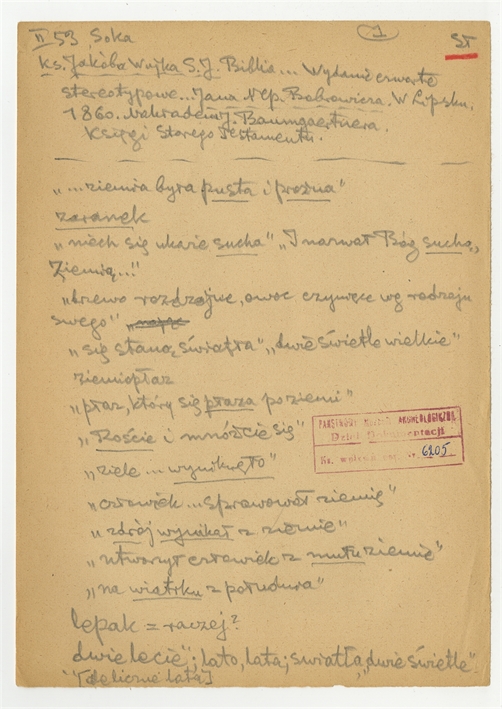 II 53 Soka
1
ST
ks. Jakóba Wujka S.J. Biblia... Wydanie czwarte
stereotypowe... Jana Nep. Bobrowicza. W Lipsku,
1860. Nakładem J. Baumgaertnera.
Księgi Starego Testamentu.
„...ziemia była pusta i próżna"
zaranek
„niech się ukaże sucha" „I nazwał Bóg suchą,
Ziemią..."
„drzewo rodzajne, owoc czyniące wg rodzaju
swego"
„się staną światła" „dwie świetle wielkie"
ziemiopłaz
„płaz, który się płaza po ziemi"
„Roście i mnóżcie się"
PAŃSTWOWE MUZEUM ARCHEOLOGICZNE
Dział Dokumentacji
6205
„ziele... wyniknęło"
„człowiek... sprawował ziemię"
„zdrój wynikał z ziemie"
„utworzył człowiek z mułu ziemie"
„na wiatrku z południa"
lepak = raczej?
dwie lecie"; lato, lata; światła, „dwie świetle"
[de liczne lata]